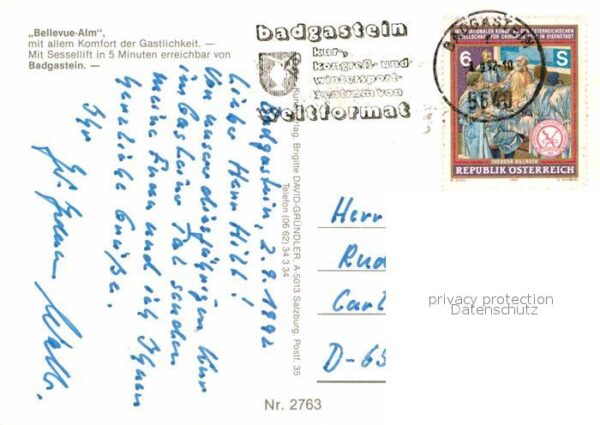 „Bellevue-Alm“,
mit allem Komfort der Gastlichkeit. —
Mit Sessellift in 5 Minuten erreichbar von
Badgastein. —
badgastein
kur-,
kongreß- und
wintersport-
zentrum von
weltformat
BADGASTEIN
5640
6 S
THEODOR BILLROTH
REPUBLIK ÖSTERREICH
Brigitte DAVID-GRÜNDLER, A-5013 Salzburg, Postf. 35
Telefon (06 62) 34 3 34
Badgastein, 2.9.1992
Lieber Herr Hill!
Von unserer diesjährigen Kur
im Gasteiner Tal senden
meine Frau und ich Ihnen
herzliche Grüße.
Ihr
Herr
Rud
Carl
D-65
privacy protection
Datenschutz
Nr. 2763